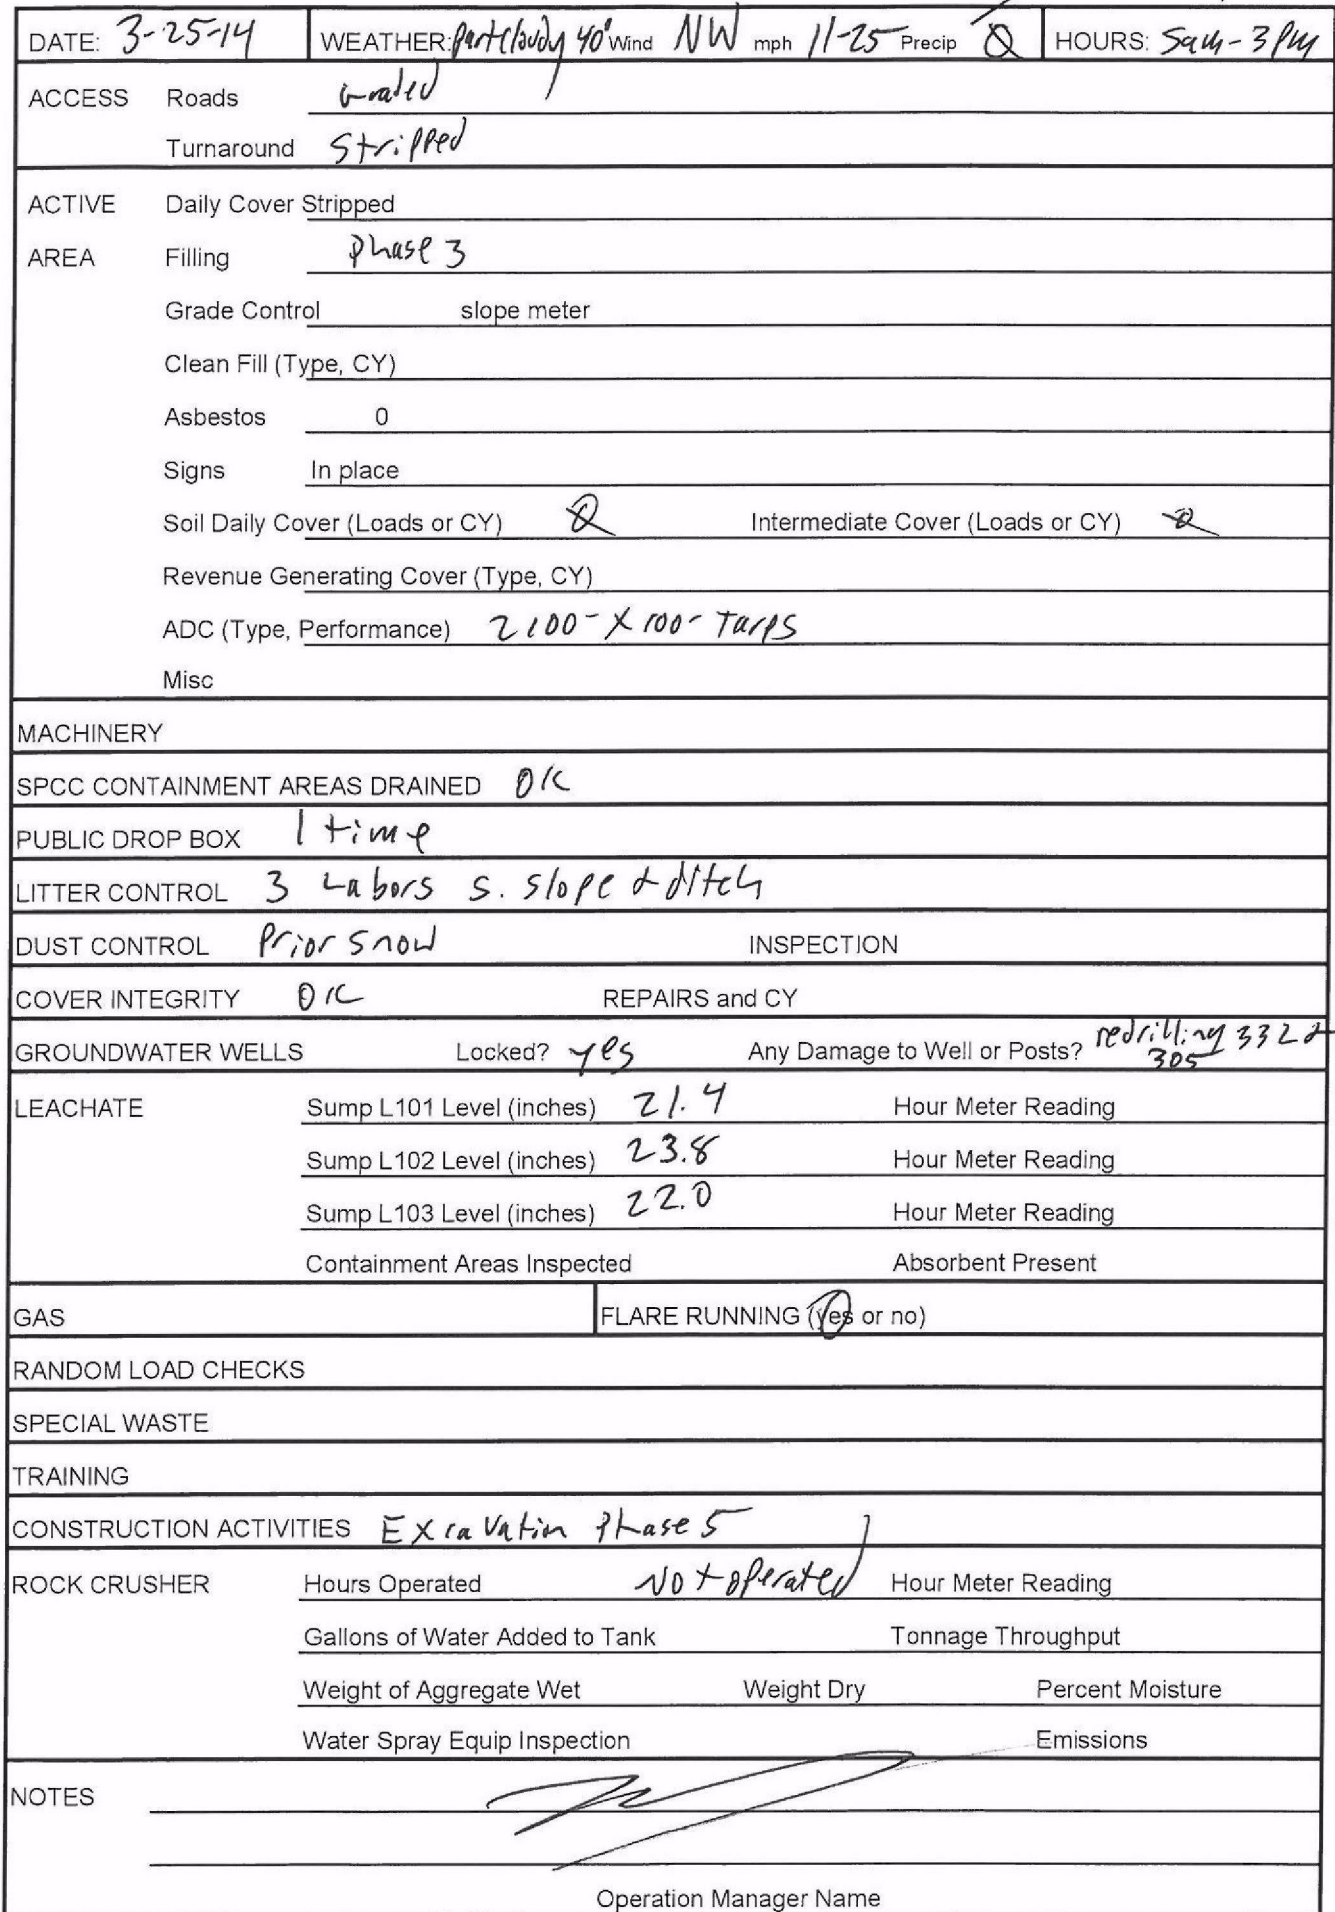 DATE: 3-25-14 WEATHER: Part Cloudy 40° Wind NW mph 11-25 Precip 0 HOURS: 5am-3PM
ACCESS Roads Graded
Turnaround Stripped
ACTIVE Daily Cover Stripped
AREA Filling Phase 3
Grade Control slope meter
Clean Fill (Type, CY)
Asbestos 0
Signs In place
Soil Daily Cover (Loads or CY) 0 Intermediate Cover (Loads or CY) 0
Revenue Generating Cover (Type, CY)
ADC (Type, Performance) 2 100- X 100- Tarps
Misc
MACHINERY
SPCC CONTAINMENT AREAS DRAINED OK
PUBLIC DROP BOX 1 time
LITTER CONTROL 3 Labors S. slope & ditch
DUST CONTROL Prior snow INSPECTION
COVER INTEGRITY OK REPAIRS and CY
GROUNDWATER WELLS Locked? yes Any Damage to Well or Posts? redrilling 332 &
305
LEACHATE Sump L101 Level (inches) 21.4 Hour Meter Reading
Sump L102 Level (inches) 23.8 Hour Meter Reading
Sump L103 Level (inches) 22.0 Hour Meter Reading
Containment Areas Inspected Absorbent Present
GAS FLARE RUNNING (yes or no)
RANDOM LOAD CHECKS
SPECIAL WASTE
TRAINING
CONSTRUCTION ACTIVITIES Excavation Phase 5
ROCK CRUSHER Hours Operated Not operated Hour Meter Reading
Gallons of Water Added to Tank Tonnage Throughput
Weight of Aggregate Wet Weight Dry Percent Moisture
Water Spray Equip Inspection Emissions
NOTES
Operation Manager Name